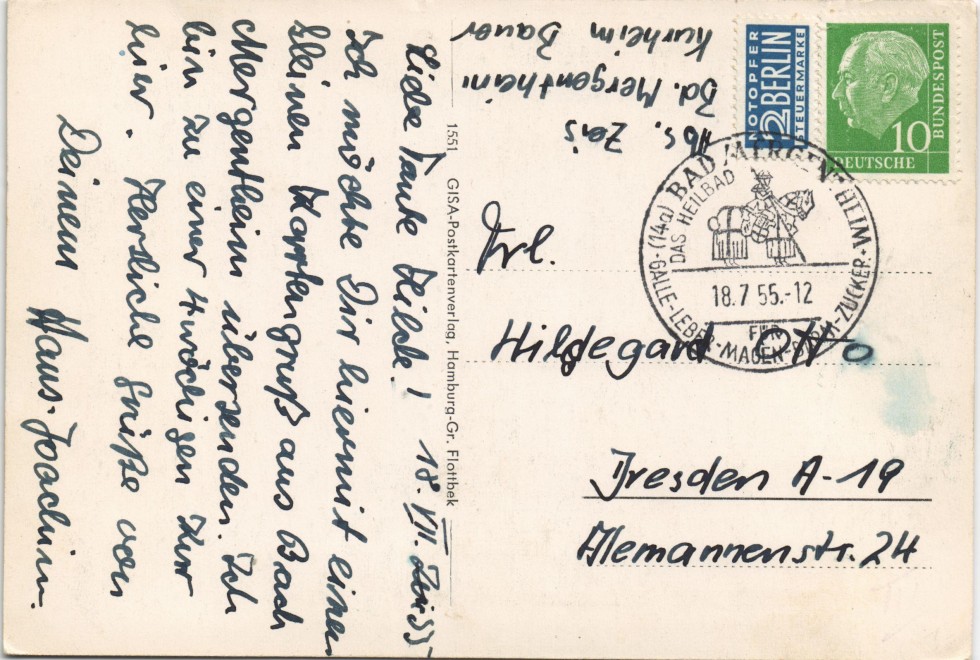 Liebe Tante Hilde! 18. VII. 1955
Ich möchte Dir hiermit einen
kleinen Kartengruß aus Bad
Mergentheim übersenden. Ich
bin zu einer 4 wöchigen Kur
hier. Herzliche Grüße von
Deinem Hans-Joachim.
1551 GISA-Postkartenverlag, Hamburg-Gr. Flottbek
Abs. Zeis
Bd. Mergentheim
Kurheim Bauer
NOTOPFER
2 BERLIN
STEUERMARKE
10
DEUTSCHE
BUNDESPOST
(14a) BAD MERGENTHEIM
DAS HEILBAD
18.7 55.-12
FÜR
GALLE-LEBER-MAGEN-DARM-ZUCKER
Frl.
Hildegard Otto
Dresden A-19
Alemannenstr. 24